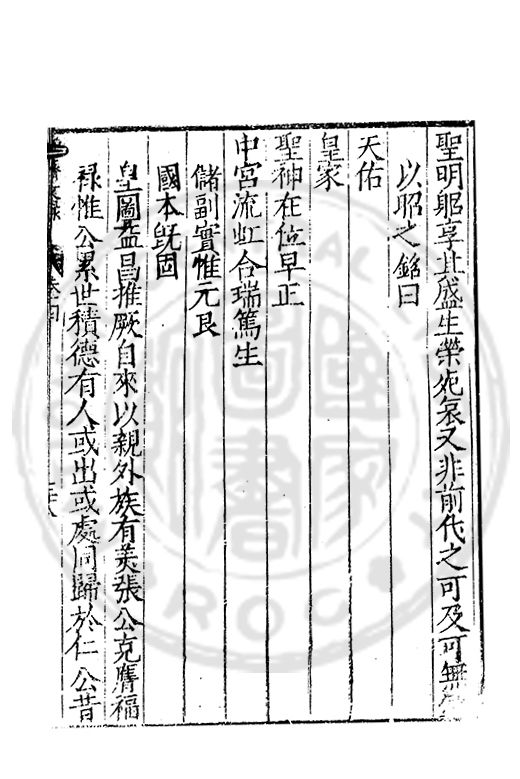 聖明躬享其盛生榮死哀又非前代之可及可無
以昭之銘曰
天佑
皇家
聖神在位早正
中宮流虹合瑞篤生
儲副實惟元良
國本旣固
皇圖益昌推厥自來以親外族有美張公克膺福
祿惟公累世積德有人或出或處同歸於仁公昔